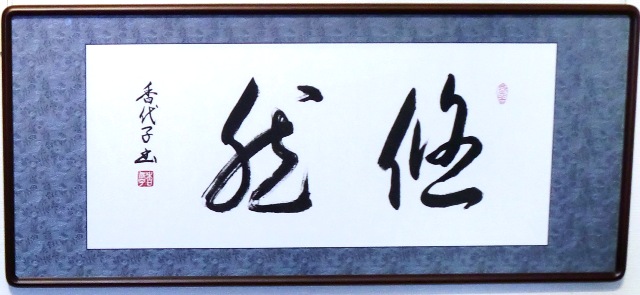 悠然
香代子書